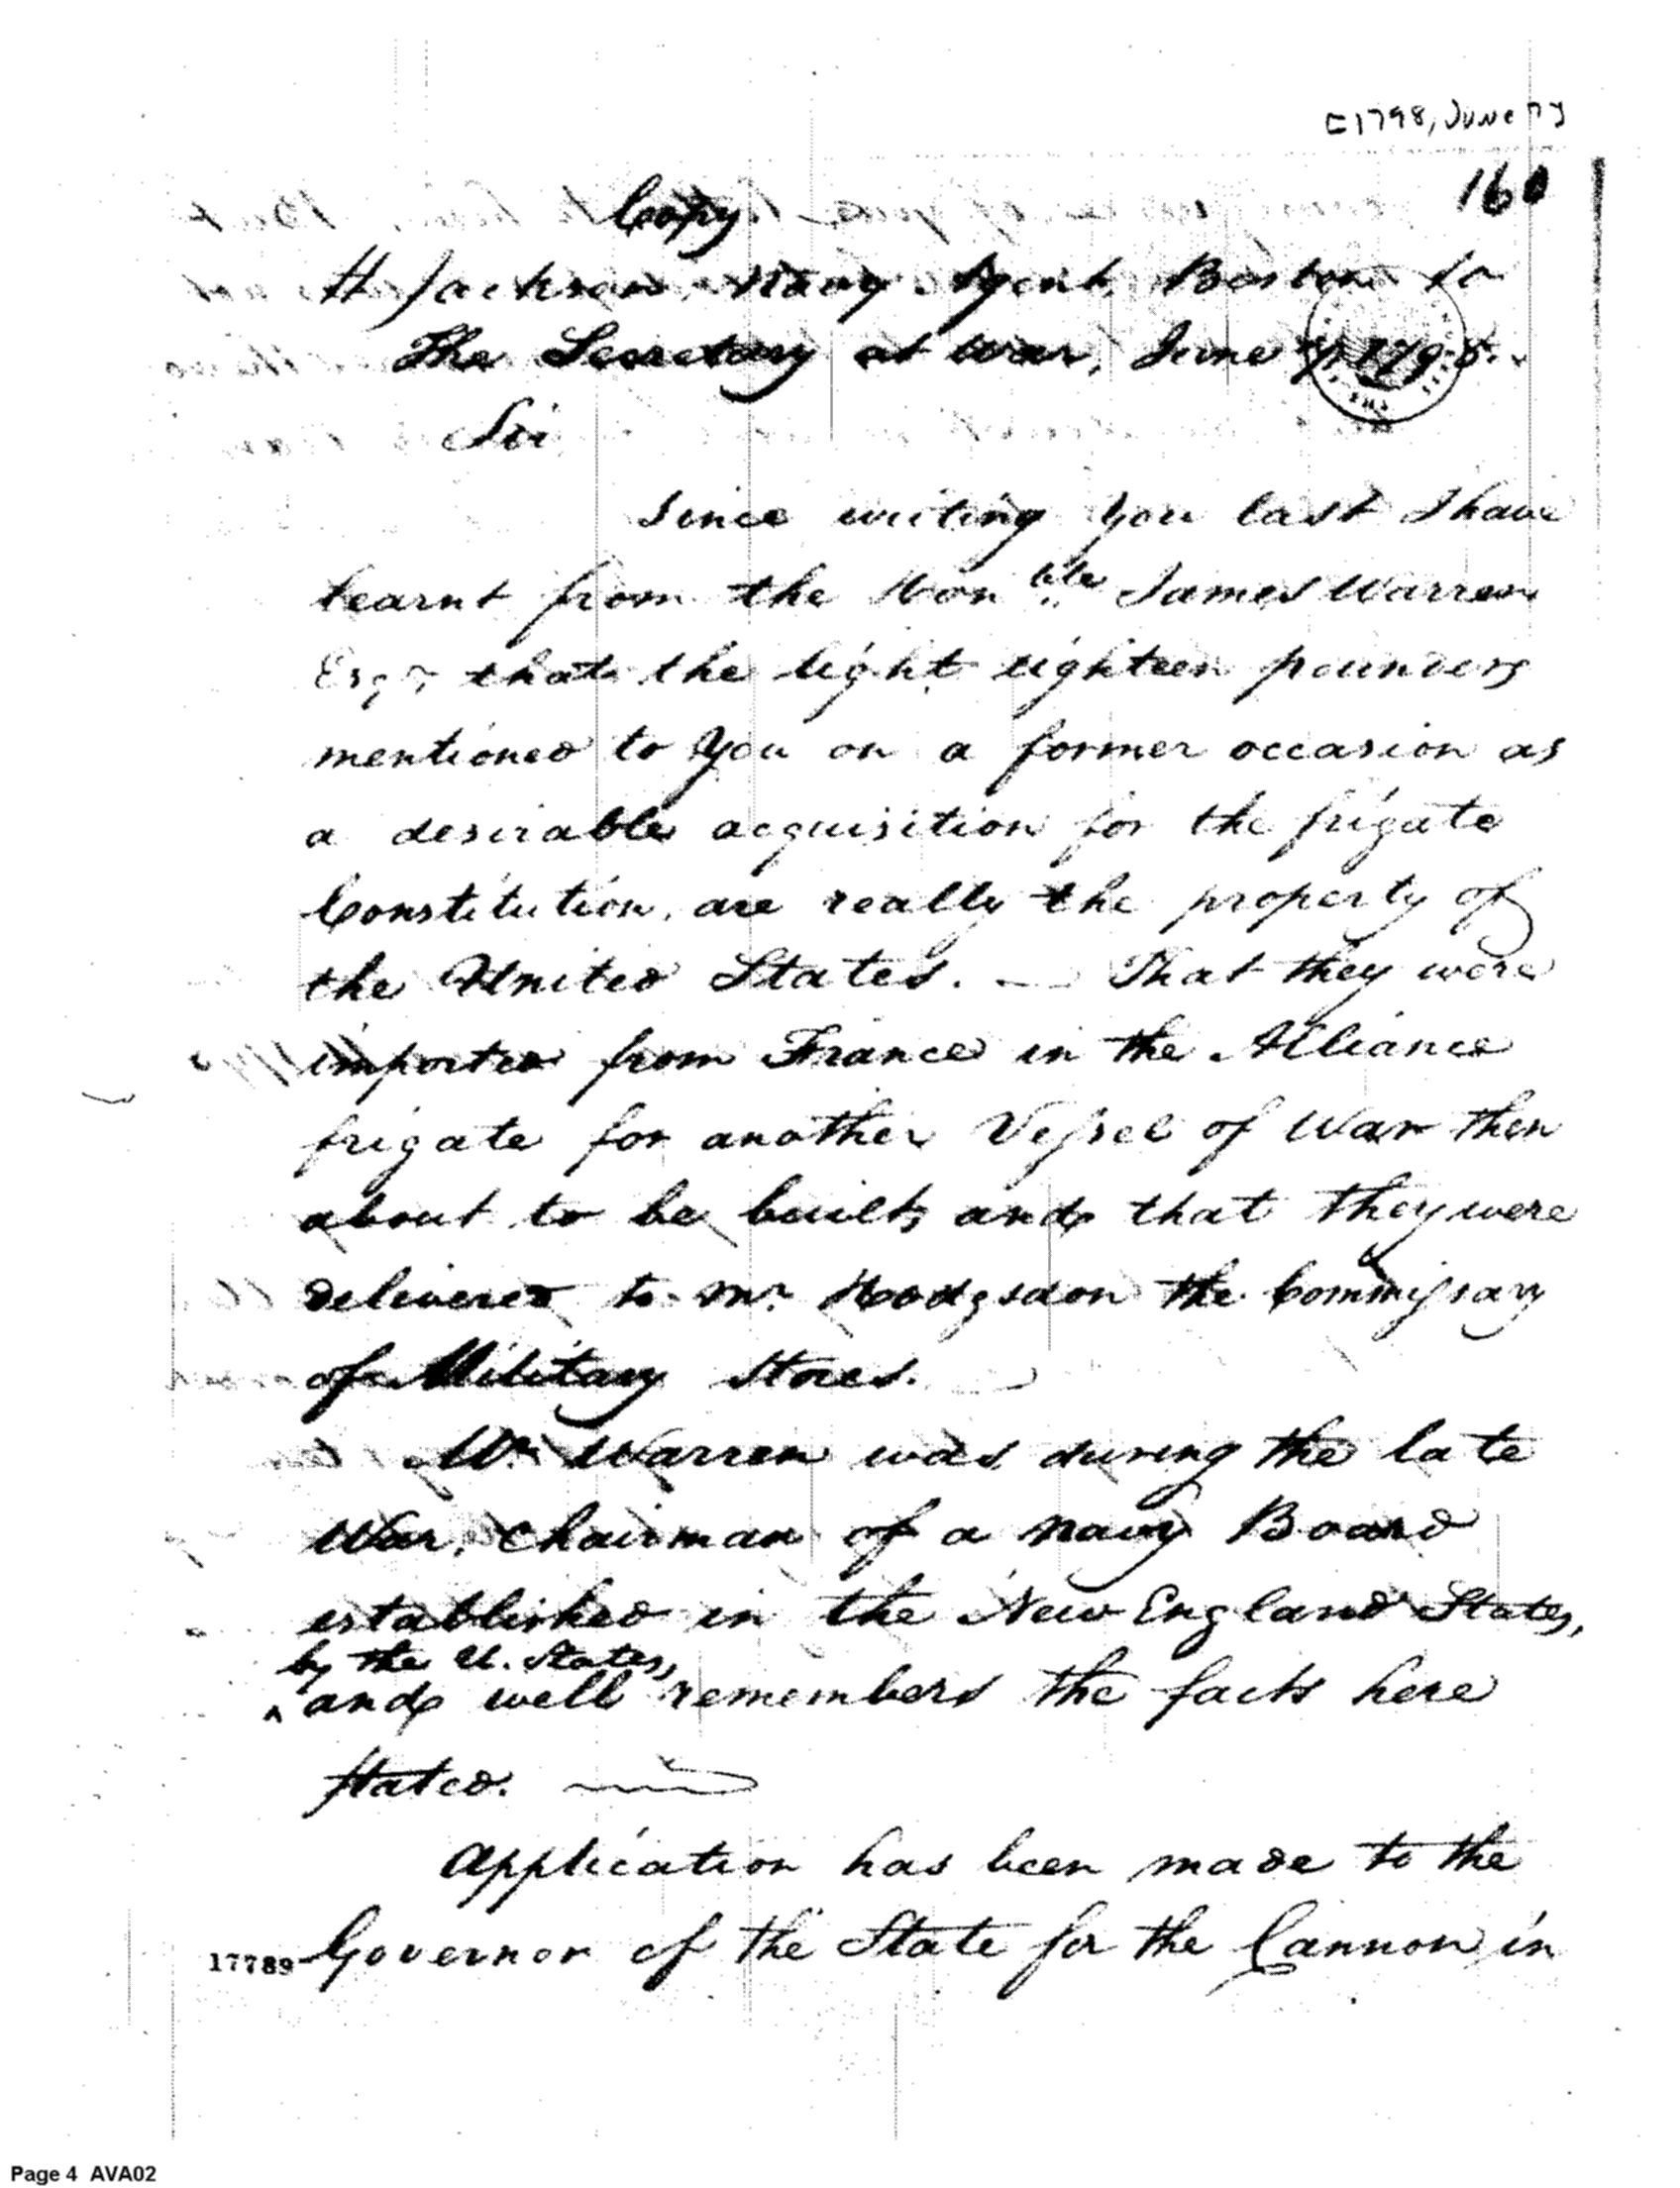 [1798, June 7]
160
Copy
H Jackson, Navy Agent, Boston to
The Secretary at War, June 7, 1798.
Sir
Since writing you last I have
learnt from the Honble James Warren
Esqr that the light eighteen pounders
mentioned to you on a former occasion as
a desirable acquisition for the frigate
Constitution, are really the property of
the United States. — That they were
imported from France in the Alliance
frigate for another Vessel of War then
about to be built, and that they were
delivered to Mr. Hodgsdon the Commissary
of Military Stores. —
Mr. Warren was during the late
War, Chairman of a Navy Board
established in the New England States,
by the U. States,
^ and well remembers the facts here
stated. —
Application has been made to the
Governor of the State for the Cannon in
17789
Page 4 AVA02